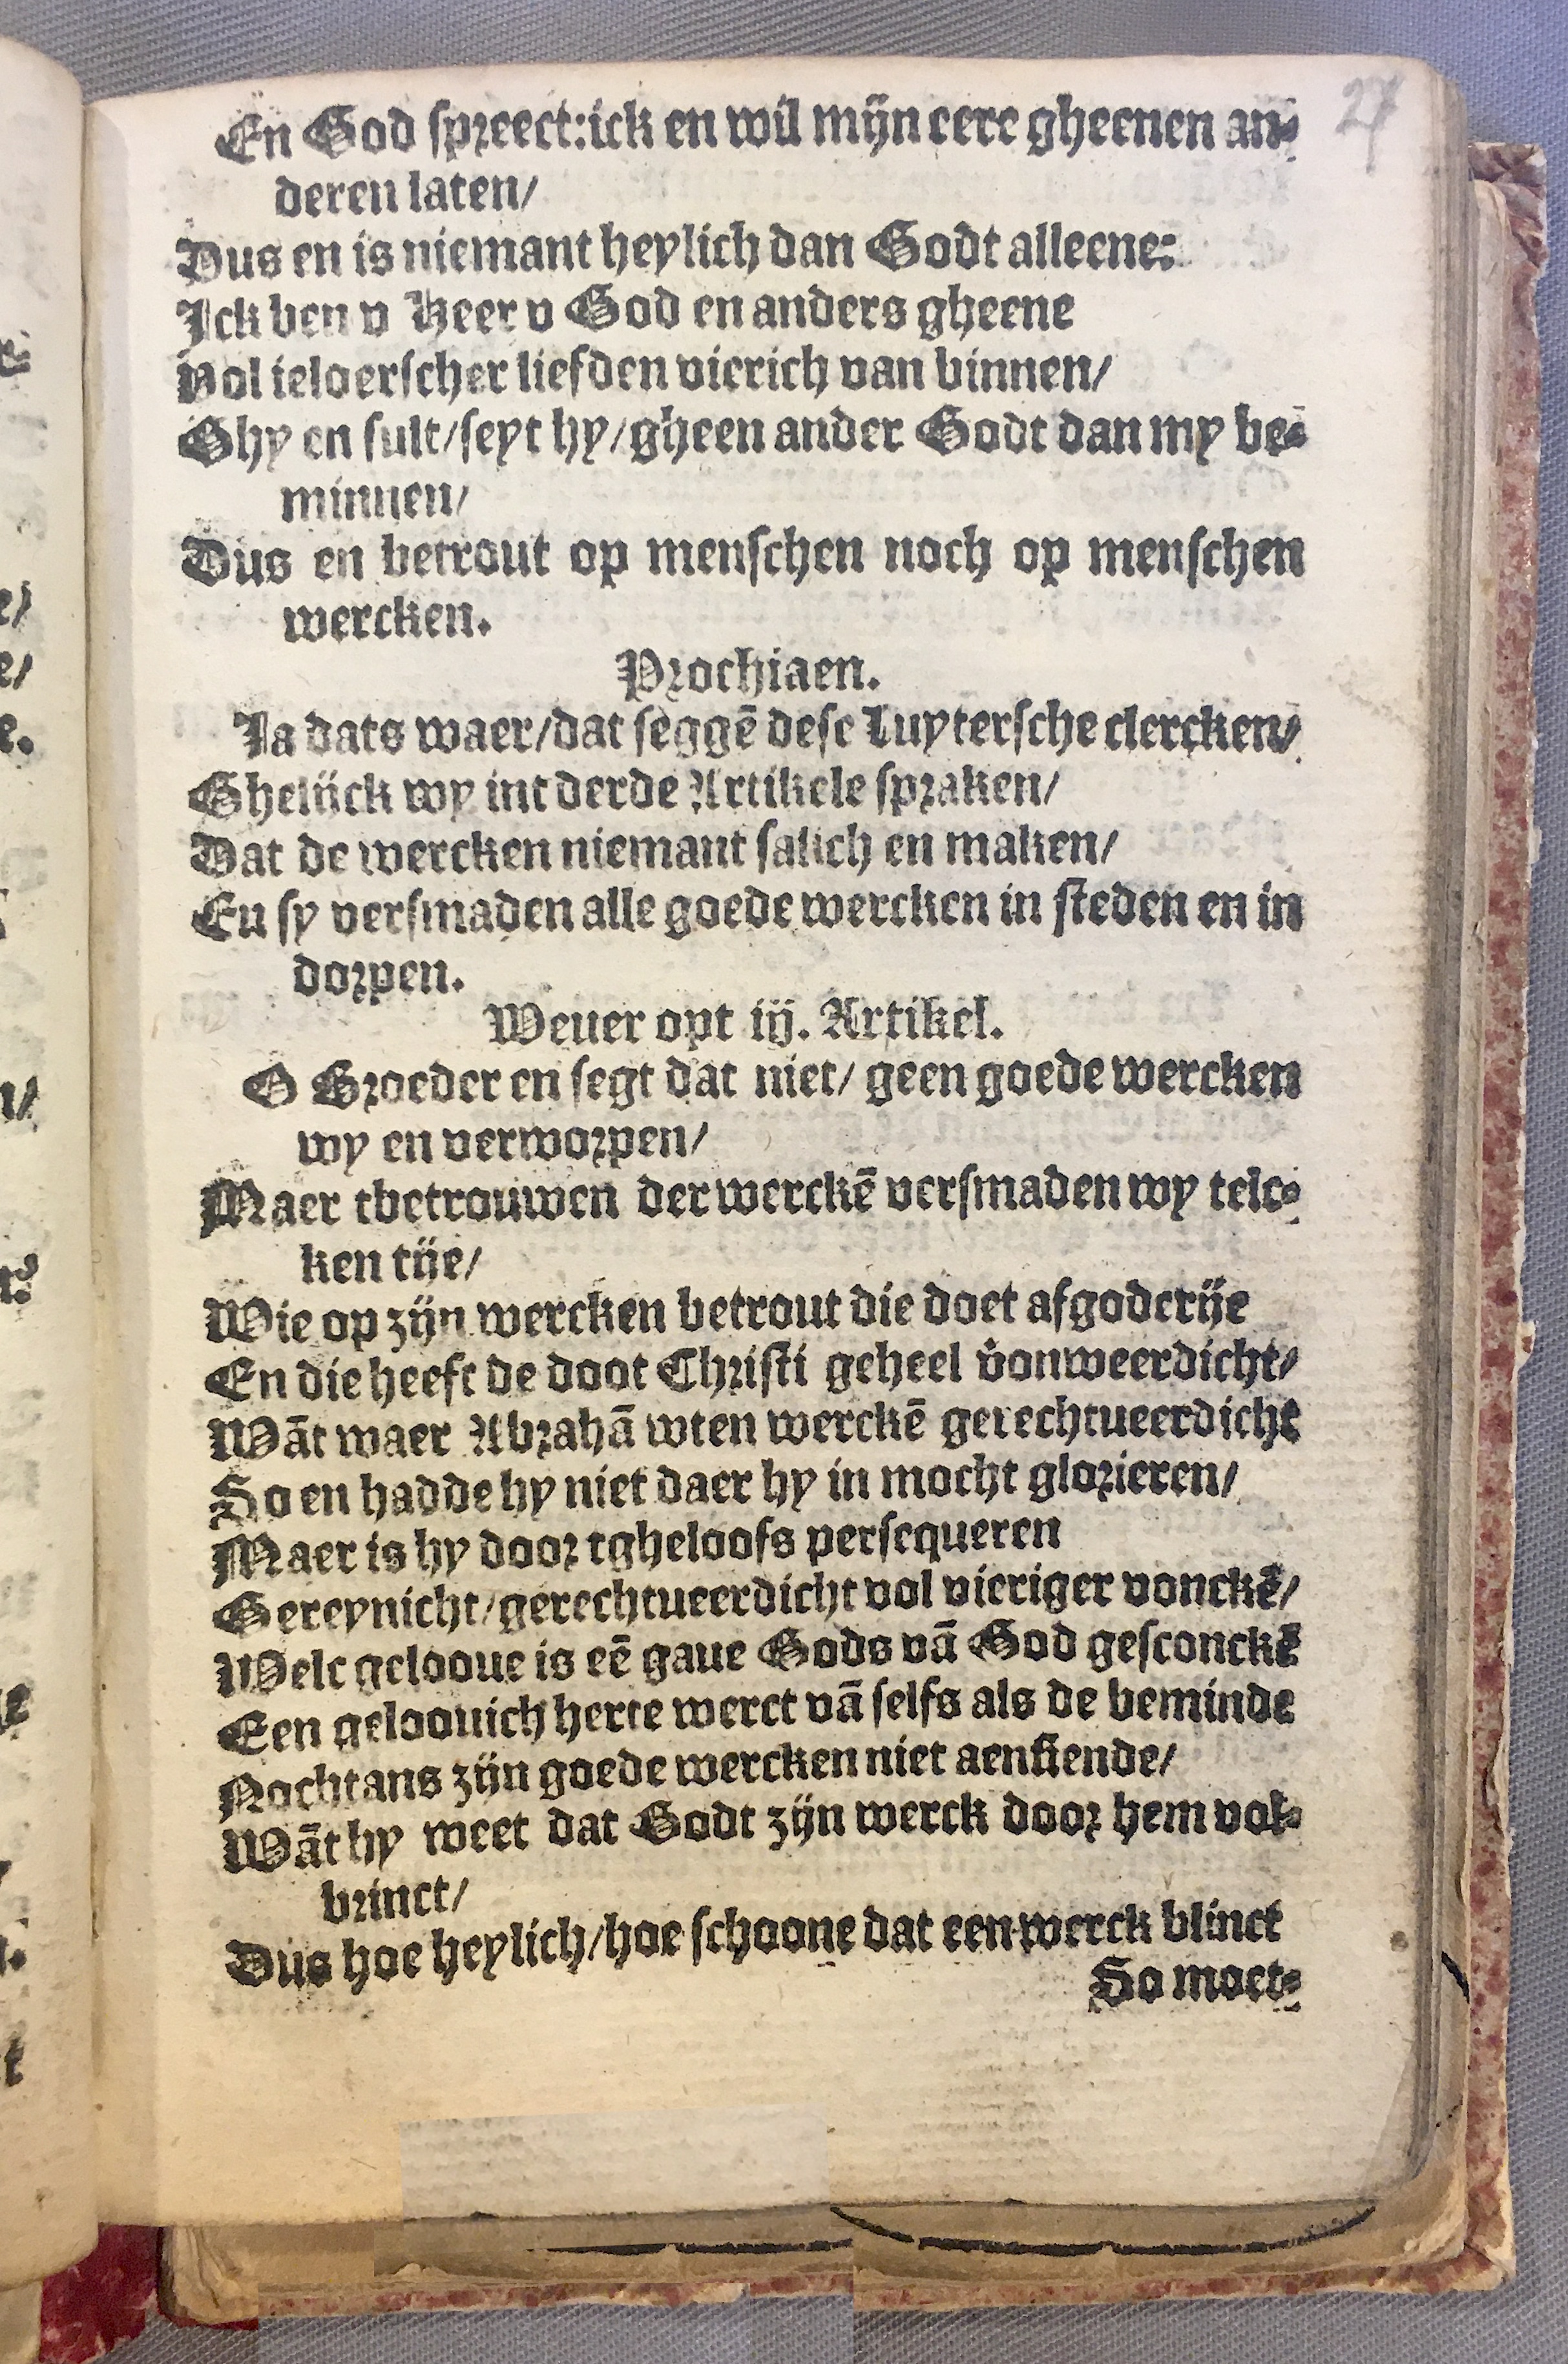 27
En God spreect:ick en wil mijn eere gheenen an-
deren laten/
Dus en is niemant heylich dan Godt alleene:
Ick ben v Heer v God en anders gheene
Vol ieloerscher liefden vierich van binnen/
Ghy en sult/seyt hy/gheen ander Godt dan my be-
minnen/
Dus en betrout op menschen noch op menschen
wercken.
Prochiaen.
Ja dats waer/dat seggē dese Luytersche clercken/
Ghelijck wy int derde Artikele spraken/
Dat de wercken niemant salich en maken/
En sy versmaden alle goede wercken in steden en in
dorpen.
Weuer opt iij. Artikel.
O Broeder en segt dat niet/ geen goede wercken
wy en verworpen/
Maer tbetrouwen der werckē versmaden wy telc-
ken tije/
Wie op zijn wercken betrout die doet afgoderije
En die heeft de doot Christi geheel v̊onweerdicht/
Wāt waer Abrahā wten werckē gerechtueerdicht
So en hadde hy niet daer hy in mocht glorieren/
Maer is hy door tgheloofs persequeren
Gereynicht/gerechtueerdicht vol vieriger vonckē/
Welc gelooue is eē gaue Gods vā God gesconckē
Een geloouich herte werct vā selfs als de beminde
Nochtans zijn goede wercken niet aensiende/
Wāt hy weet dat Godt zijn werck door hem vol-
brinct/
Dus hoe heylich/hoe schoone dat een werck blinct
So moet-